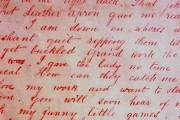 the right track. That joke
out Leather Apron gave me real
I am down on whores
shant quit ripping them till
get buckled. Grand work the
was. I gave the lady no time
How can they catch me
my work and want to sta
You will soon hear of
my funny little games